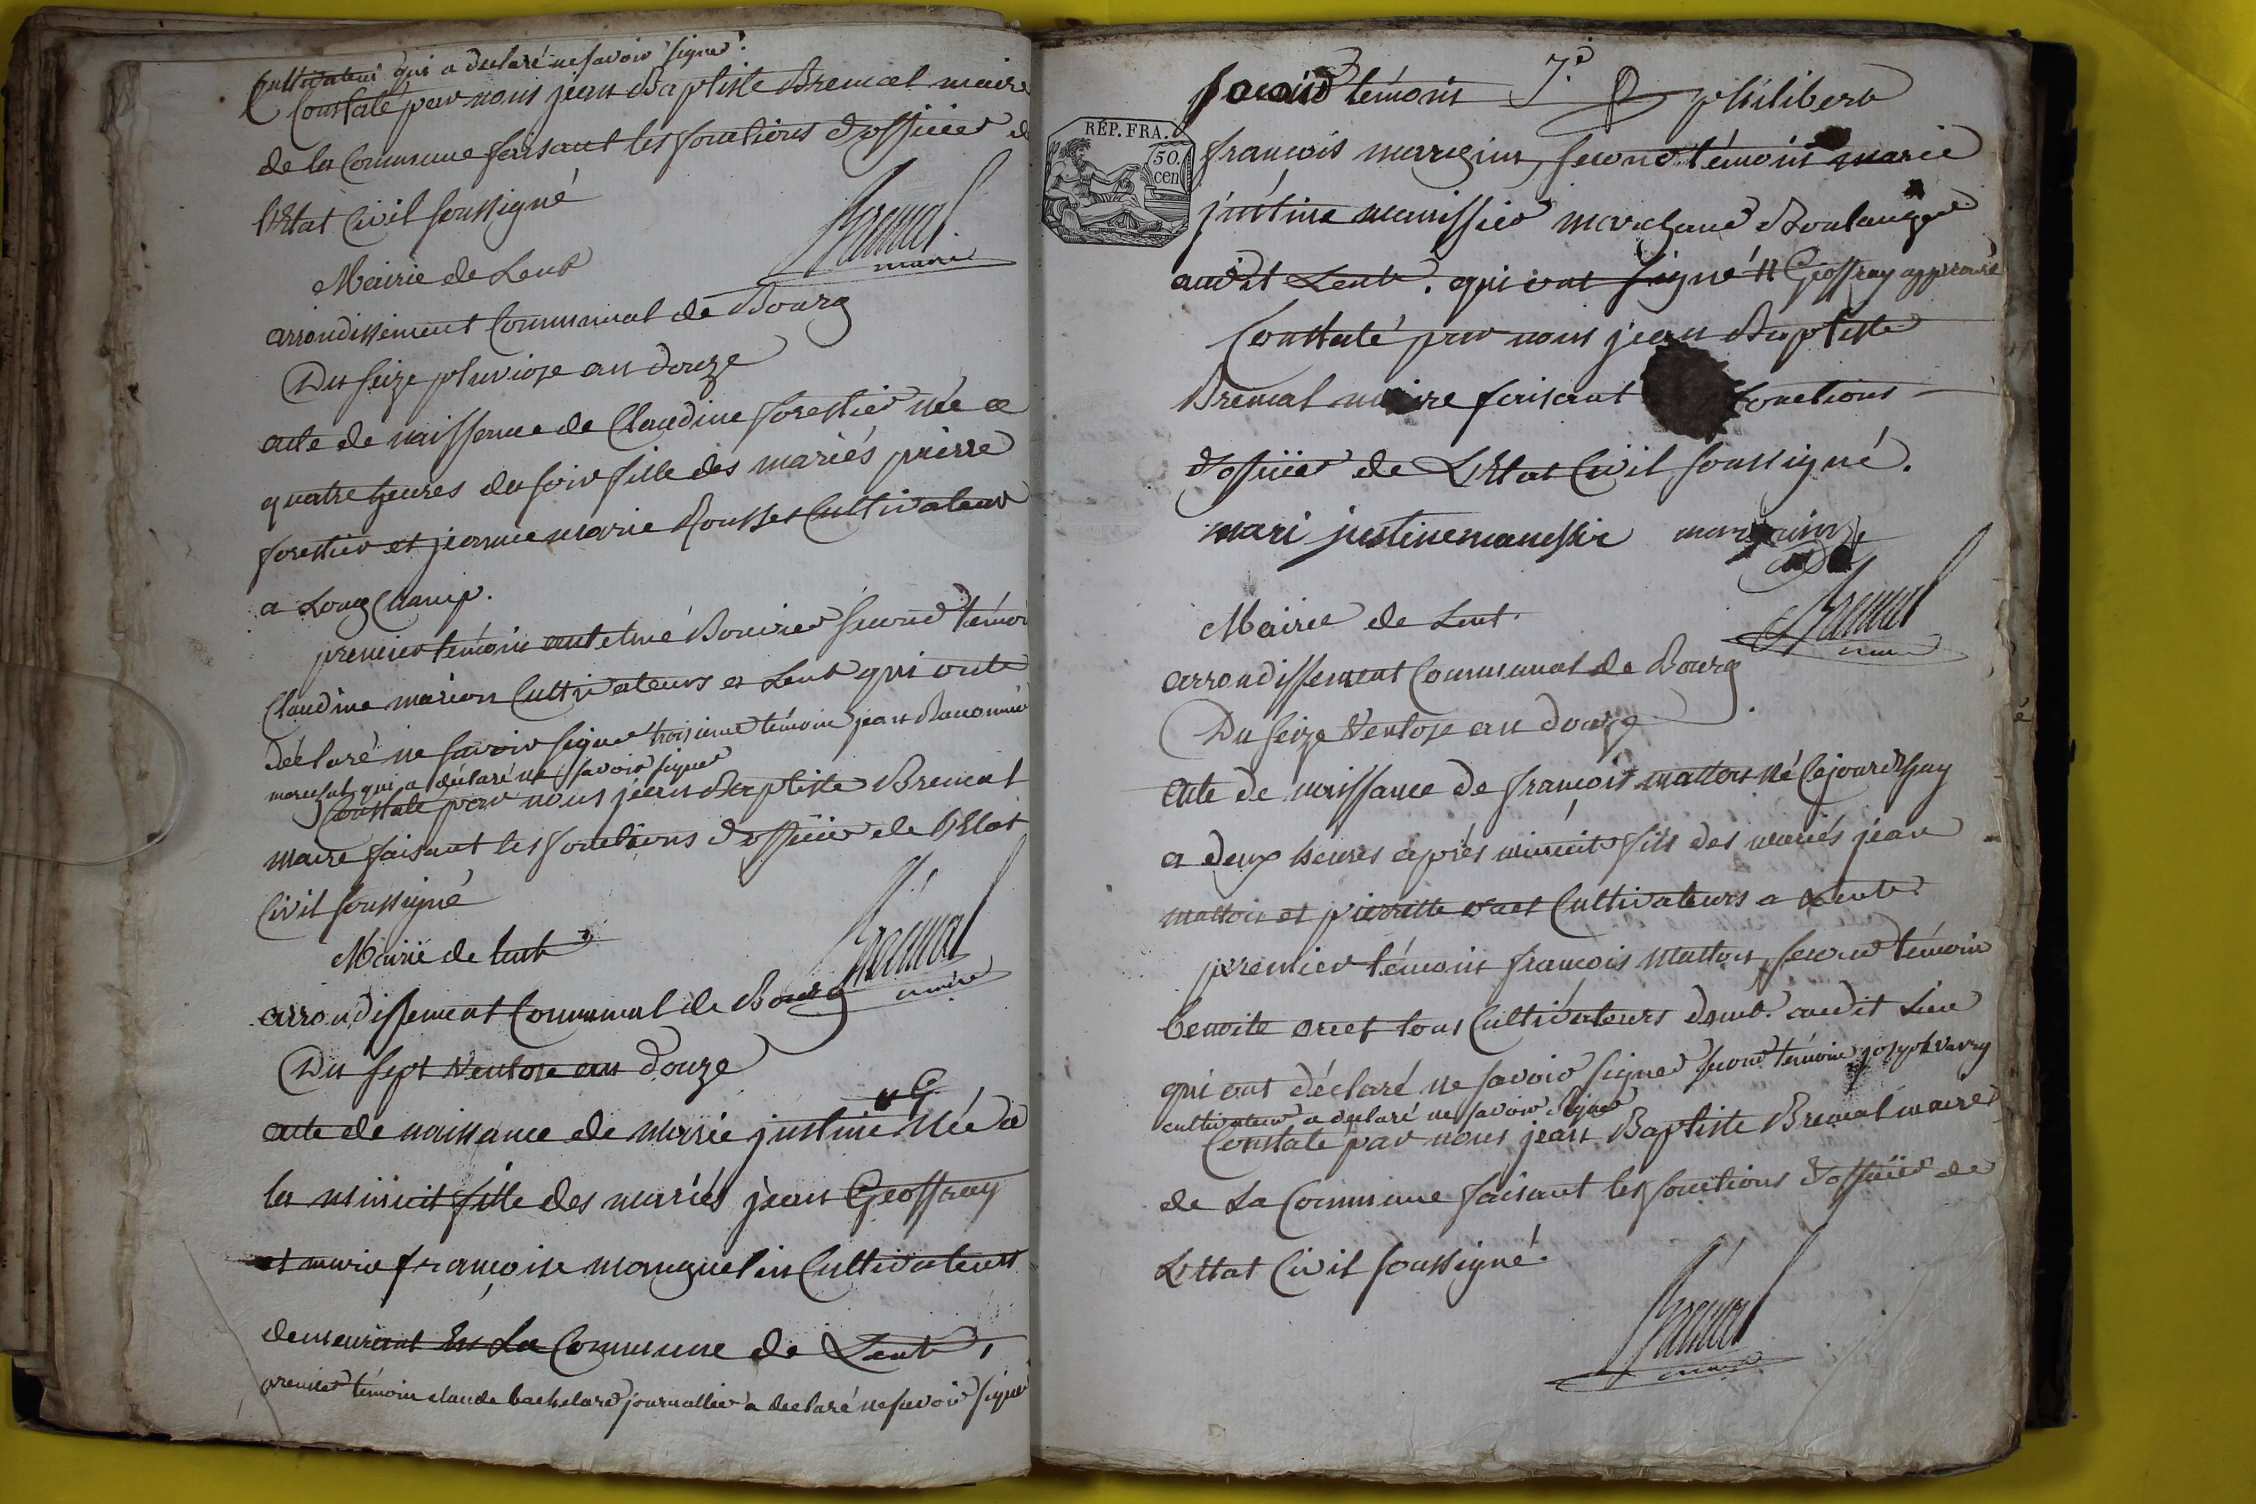 Cultivateur qui a declaré ne savoir signer.
Constaté par nous jean Baptiste Bremal maire
de la Commune faisant les fonctions d'officier de
l'Etat Civil soussigné
Bremal
maire
Mairie de Lent
arrondissement Communal de Bourg
Du seize pluviose an douze
acte de naissance de Claudine forestier née a
quatre heures du soir fille des mariés pierre
forestier et jeanne marie Rousset Cultivateur
a Longchamp.
premier témoin antelme Bouvier second témoin
Claudine marion Cultivateurs a Lent qui onts
déclaré ne savoir signer troisieme témoin jean
marechal qui a déclaré ne savoir signer
Constaté par nous jean Baptiste Bremal
maire faisant les fonctions d'officier de l'Etat
Civil soussigné
Bremal
maire
Mairie de Lent
arrondissement Communal de Bourg
Du sept Ventose an douze
G
acte de naissance de marie justine Née a
la minuit fille des mariés jean Geoffray
et marie françoise monguelin Cultivateurs
demeurant En La Commune de Lent,
premier témoin claude bachelard journallier a declaré ne savoir signer
3
second témoin 7. philibert
RÉP. FRA.
50.
cen
françois marrguin, second témoin marie
justine manissier marchand Boulanger
audit Lent. qui ont signé // Geoffray approuvé
Constaté par nous jean Baptiste
Bremal maire faisant fonctions
d'officier de L'Etat Civil soussigné.
mari justine manessir
Bremal
maire
Mairie de Lent.
arrondissement Communal de Bourg
Du seize Ventose an douze
acte de naissance de françois mattons né Cejourdhuy
a deux heures après minuit fils des mariés jean
mattons et pierrette Cultivateurs a Lent.
premier témoin françois mattons, second témoin
benoite tous Cultivateurs audit Lieu
qui ont déclaré ne savoir signer second témoin joseph
cultivateur a déclaré ne savoir signer
Constaté par nous jean Baptiste Bremal maire
de La Commune faisant les fonctions d'officier de
L'ettat Civil soussigné.
Bremal
maire